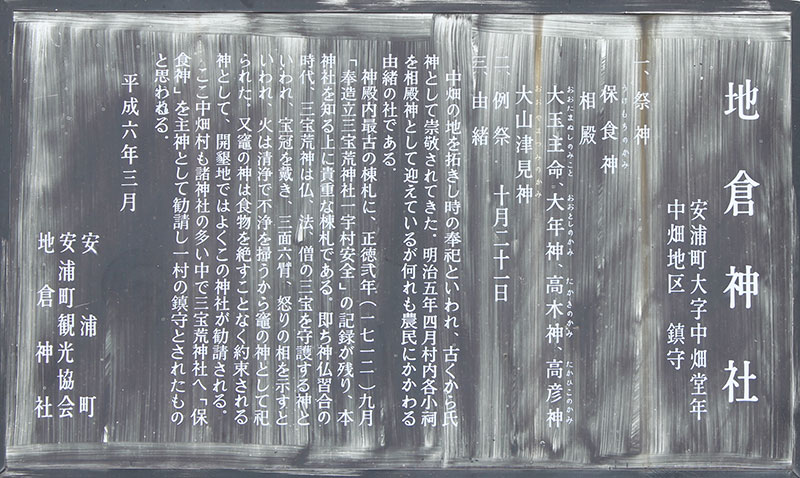 地倉神社
安浦町大字中畑堂年
中畑地区 鎮守
一、祭神
うけもちのかみ
保食神
相殿
おおたまぬしのみこと おおとしのかみ たかぎのかみ たかひこのかみ
大玉主命、大年神、高木神、高彦神
おおやまつみのかみ
大山津見神
二、例祭 十月二十二日
三、由緒
中畑の地を拓きし時の奉祀といわれ、古くから氏
神として崇敬されてきた。明治五年四月村内各小祠
を相殿神として迎えているが何れも農民にかかわる
由緒の社である。
神殿内最古の棟札に、正徳弐年(一七一二)九月
「奉造立三宝荒神社一宇村安全」の記録が残り、本
神社を知る上に貴重な棟札である。即ち神仏習合の
時代、三宝荒神は仏、法、僧の三宝を守護する神と
いわれ、宝冠を戴き、三面六臂、怒りの相を示すと
いわれ、火は清浄で不浄を掃うから竈の神として祀
られた。又竈の神は食物を絶すことなく約束される
神として、開墾地ではよくこの神社が勧請される。
ここ中畑村も諸神社の多い中で三宝荒神社へ「保
食神」を主神として勧請し一村の鎮守とされたもの
と思われる。
平成六年三月
安浦町
安浦町観光協会
地倉神社